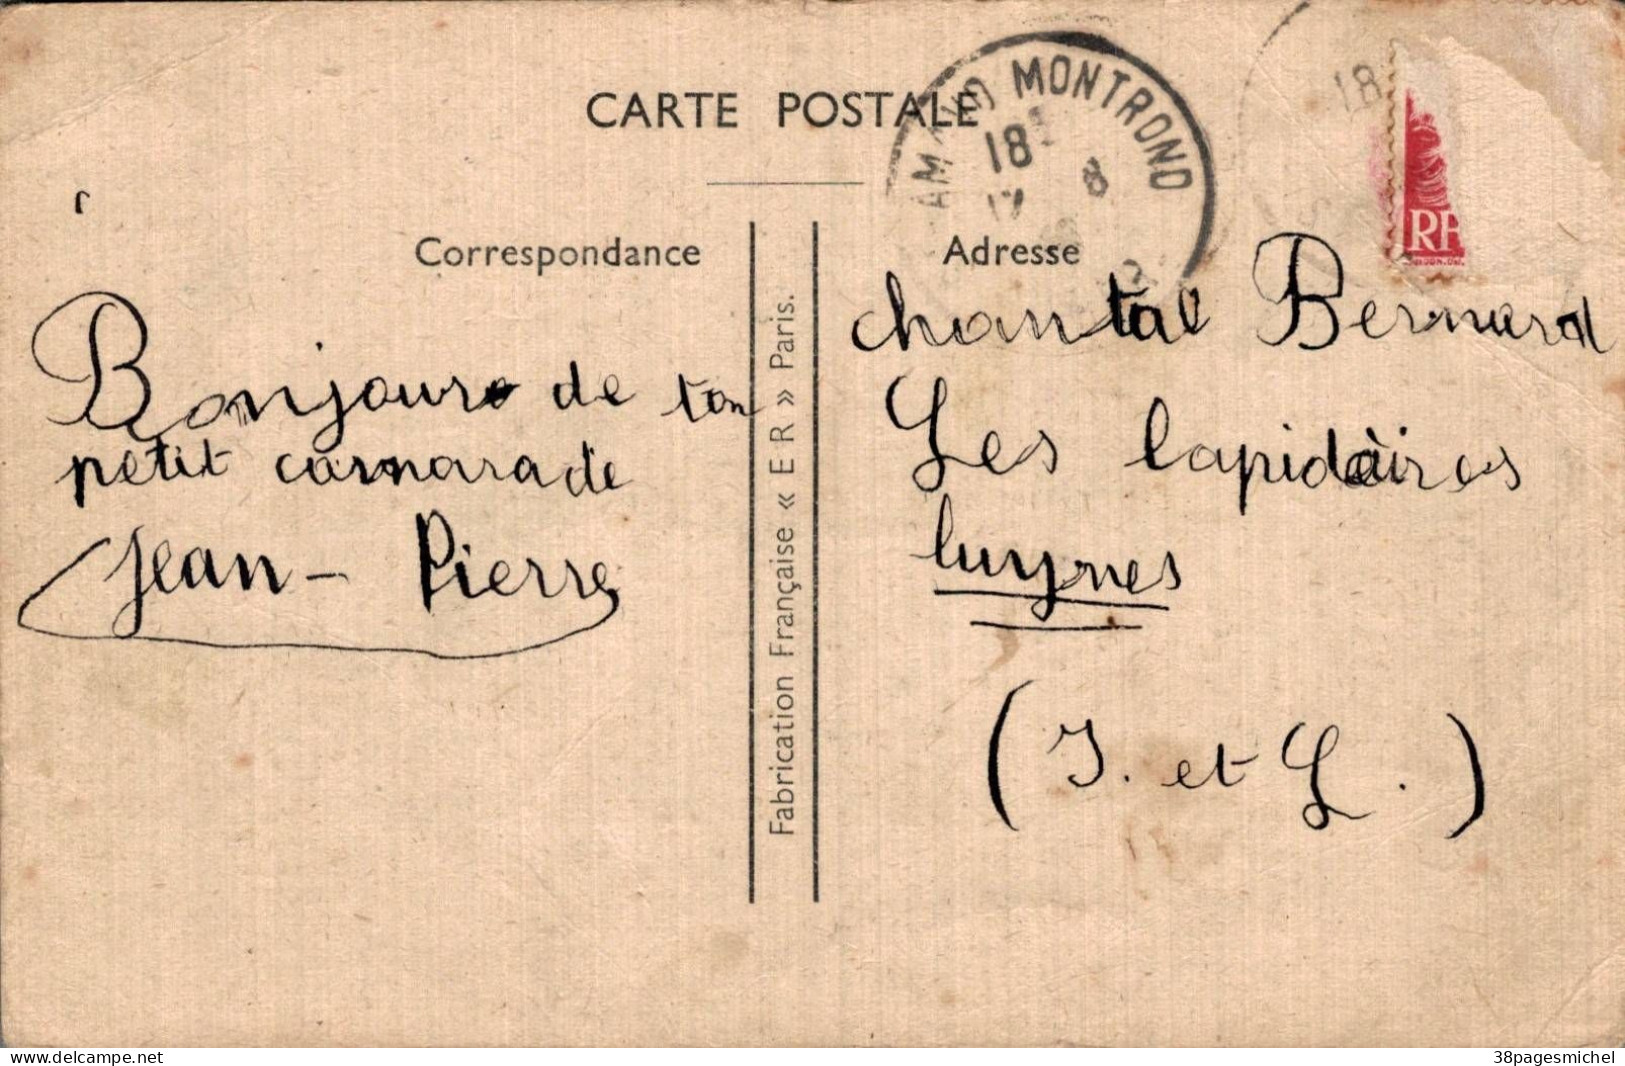 CARTE POSTALE
AMAND MONTROND
18
17 8
18
RF
Correspondance
Adresse
Bonjour de ton
petit camarade
Jean - Pierre
Fabrication Française « E R » Paris.
chantal Bernard
Les lapidaires
luynes
(I. et L.)
delcampe.net
38pagesmichel